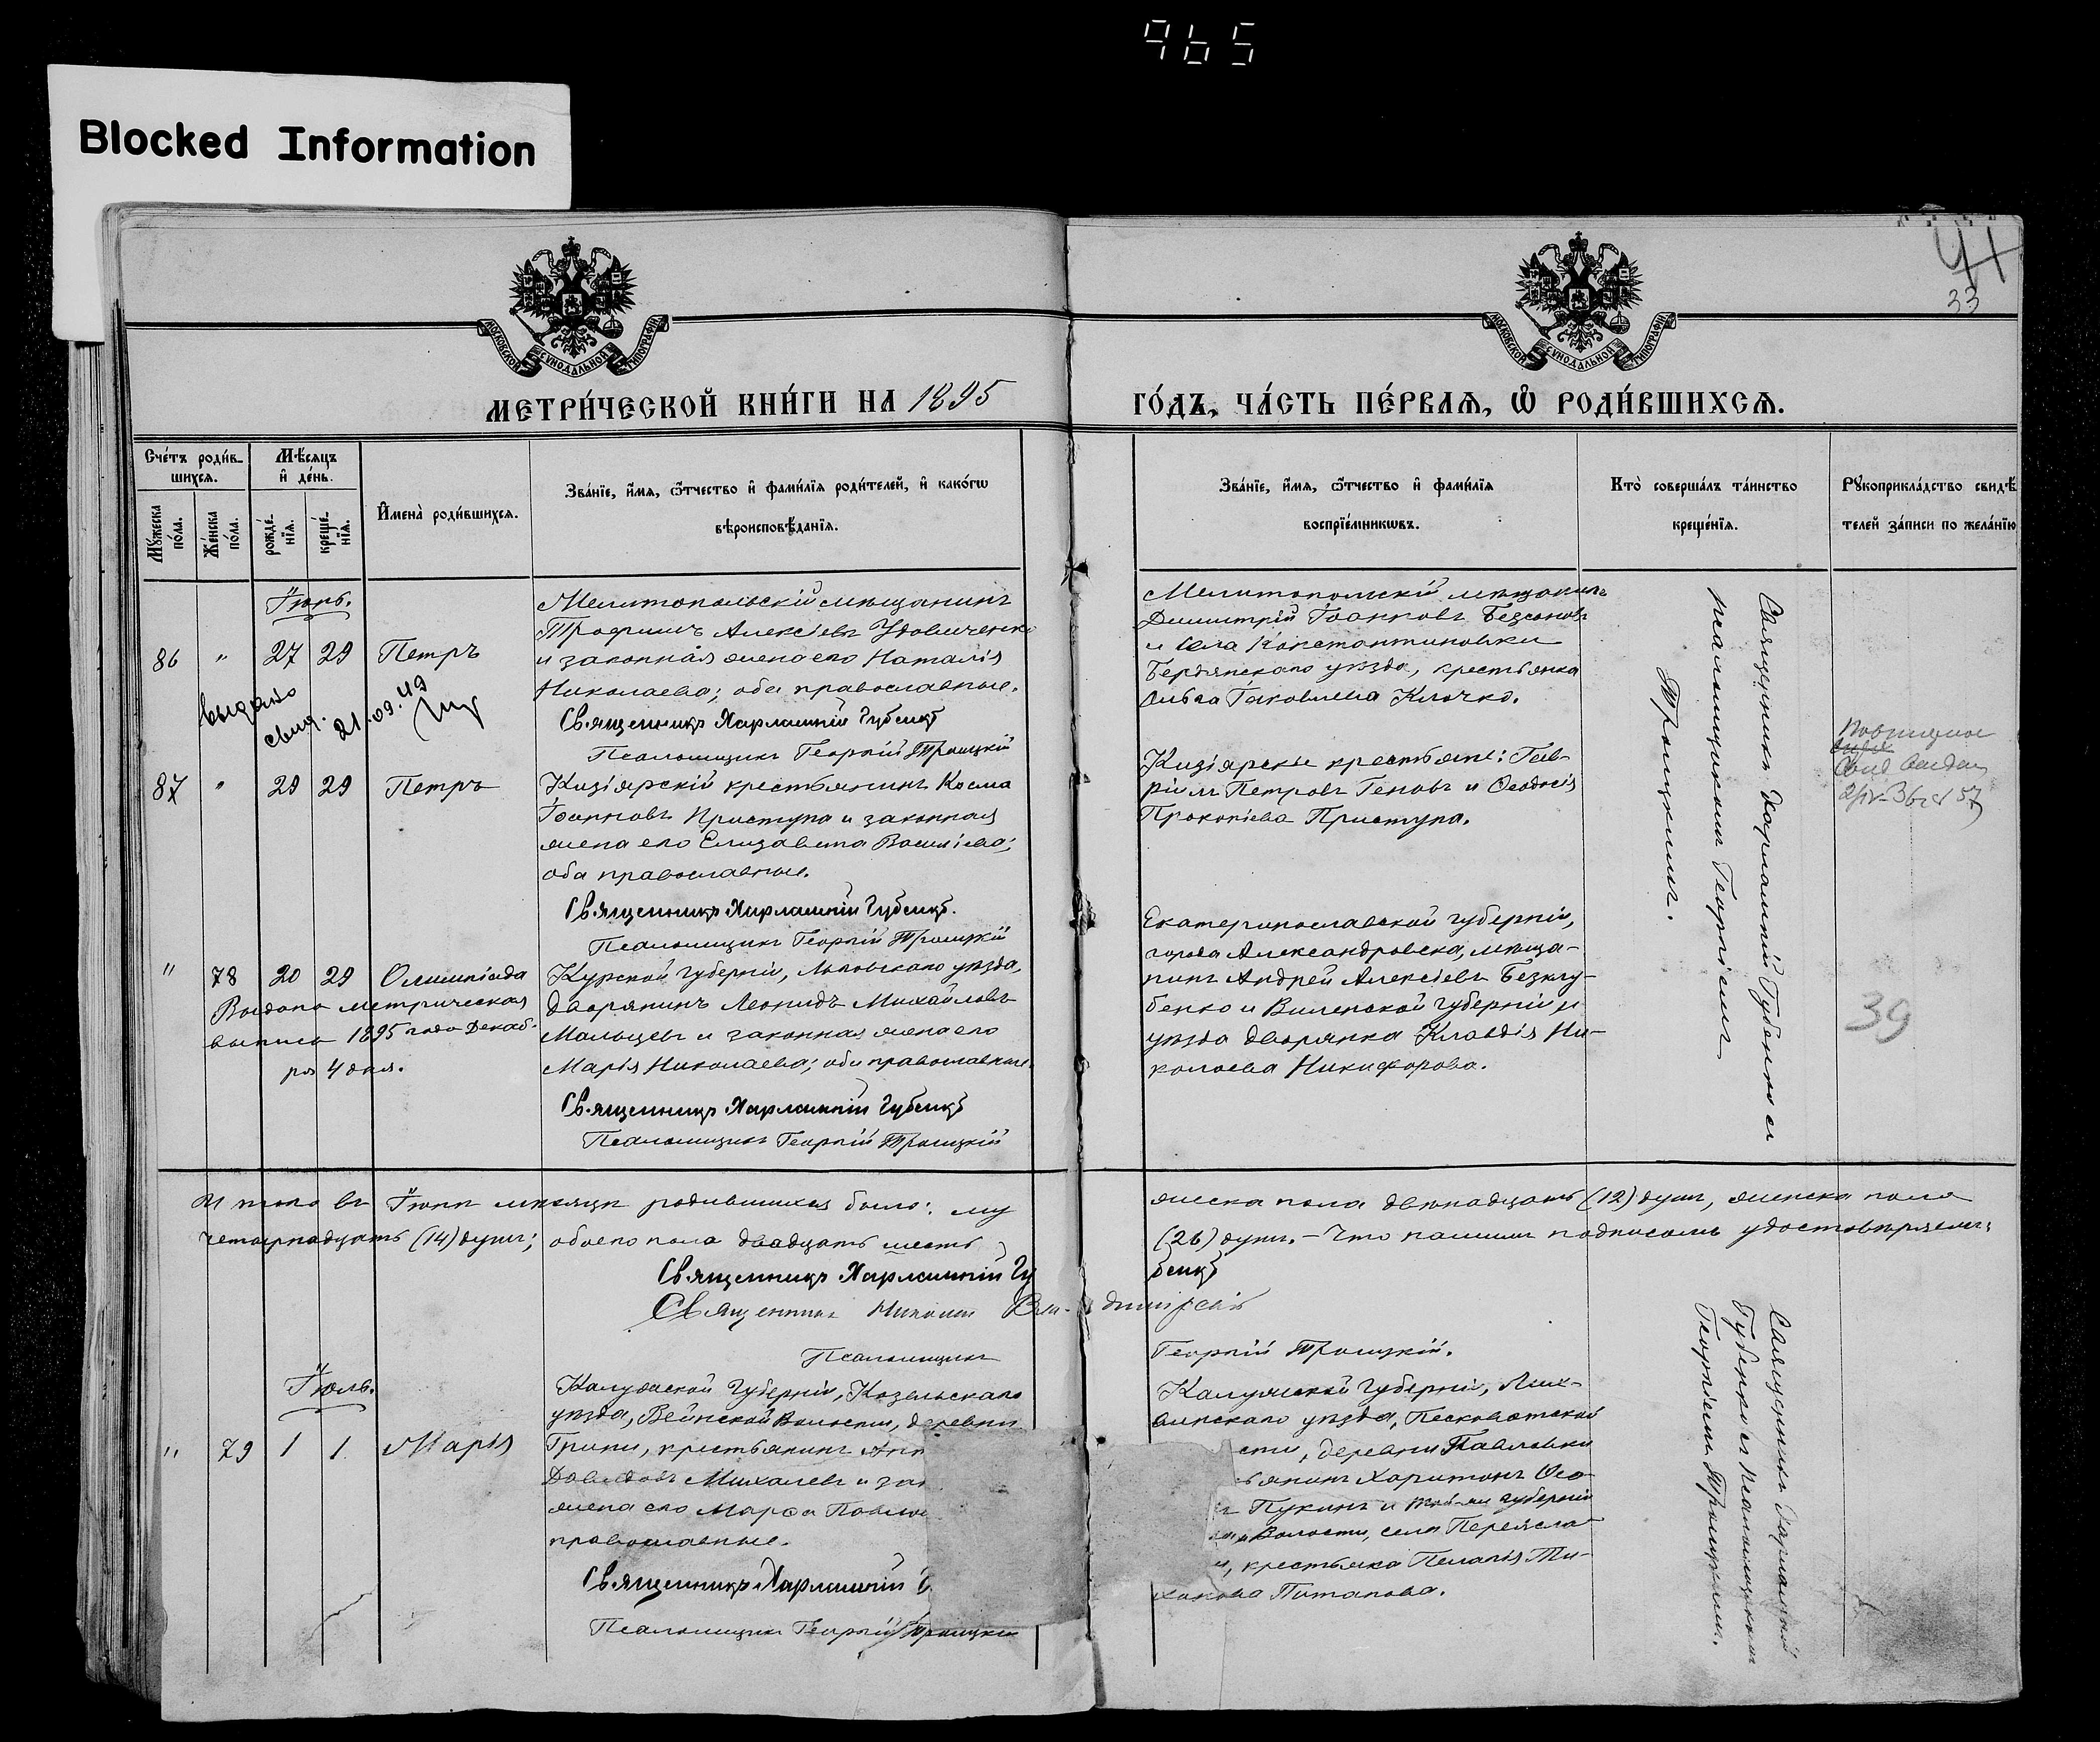 965
Blocked Information
44
33
МОСКОВСКОЙ СУНОДАЛЬНОЙ ТИПОГРАФІИ
МОСКОВСКОЙ СУНОДАЛЬНОЙ ТИПОГРАФІИ
МЕТРИ́ЧЕСКОЙ КНИ́ГИ НА 1895
ГО́ДЪ, ЧА́СТЬ ПЕ́РВАѦ, Ѡ РОДИ́ВШИХСѦ.
Сче́тъ роди́в-
шихсѧ.
Мꙋ́жеска по́ла.
Же́нска по́ла.
Мѣ́сѧцъ
и҆ де́нь.
рожде́-
нїѧ.
креще́-
нїѧ.
И҆мена̀ роди́вшихсѧ.
Зва́нїе, и҆́мѧ, ѻ҆́тчество и҆ фами́лїѧ роди́телей, и҆ како́гѡ
вѣроисповѣ́данїѧ.
Зва́нїе, и҆́мѧ, ѻ҆́тчество и҆ фами́лїѧ
воспрїе́мникѡвъ.
Кто̀ соверша́лъ та́инство
креще́нїѧ.
Рꙋкоприкла́дство свидѣ́
телей за́писи по жела́нїю
Іюнь.
86 " 27 29 Петръ
Мелитопольскій мѣщанинъ
Трофимъ Алексіевъ Удовиченко
и законная жена его Наталія
Николаева; оба православные.
Священникъ Харлампій Губенко
Псаломщикъ Георгій Троицкій
выдано
свид. 21.09.49
Мелитопольскій мѣщанинъ
Димитрій Іоанновъ Безсоновъ
и села Константиновки
Бердянскаго уѣзда, крестьянка
Ольга Іаковлева Клочко.
87 " 29 29 Петръ
Кизіярскій крестьянинъ Косма
Іоанновъ Приступа и законная
жена его Елизавета Василіева;
оба православные.
Священникъ Харлампій Губенко.
Псаломщикъ Георгій Троицкій
Кизіярскіе крестьяне: Гав-
ріилъ Петровъ Геновъ и Ѳеодосія
Прокопіева Приступа.
Повторное
" 78 20 29 Олимпіада
Выдана метрическая
выпись 1895 года Декаб-
ря 4 дня.
Курской губерніи, Льговскаго уѣзда,
дворянинъ Леонидъ Михайловъ
Мальцевъ и законная жена его
Марія Николаева; оба православные.
Священникъ Харлампій Губенко
Псаломщикъ Георгій Троицкій
Екатеринославской губерніи,
города Александровска, мѣща-
нинъ Андрей Алексіевъ Безклу-
бенко и Виленской губерніи и
уѣзда дворянка Клавдія Ни-
колаева Никифорова.
Священникъ Харлампій Губенко съ
псаломщикомъ Георгіемъ
Троицкимъ.
39
Итого въ Іюнѣ мѣсяцѣ родившихся было: му
жеска пола двѣнадцать (12) душъ, женска пола
четырнадцать (14) душъ; обоего пола двадцать шесть
(26) душъ. – Что нашимъ подписомъ удостовѣряемъ:
Священникъ Харлампій Гу
бенко
Священникъ Николай Владимірскій
Псаломщикъ
Георгій Троицкій.
Іюль.
" 79 1 1 Марія
Калужской губерніи, Козельскаго
уѣзда, Вейнской волости, деревни
Грини, крестьянинъ
Давидовъ Михалевъ и зак
жена его Марѳа Павлов
православные.
Священникъ Харлампій
Псаломщикъ Георгій Троицкій
Калужской губерніи, Лих-
винскаго уѣзда, Песковатской
сти, деревни Павловки
ьянинъ Харитонъ Ѳео-
Пукинъ и той-же губерніи
волости, села Переясла-
, крестьянка Пелагія Ти-
хонова Потапова.
Священникъ Харлампій
Губенко съ псаломщикомъ
Георгіемъ Троицкимъ.